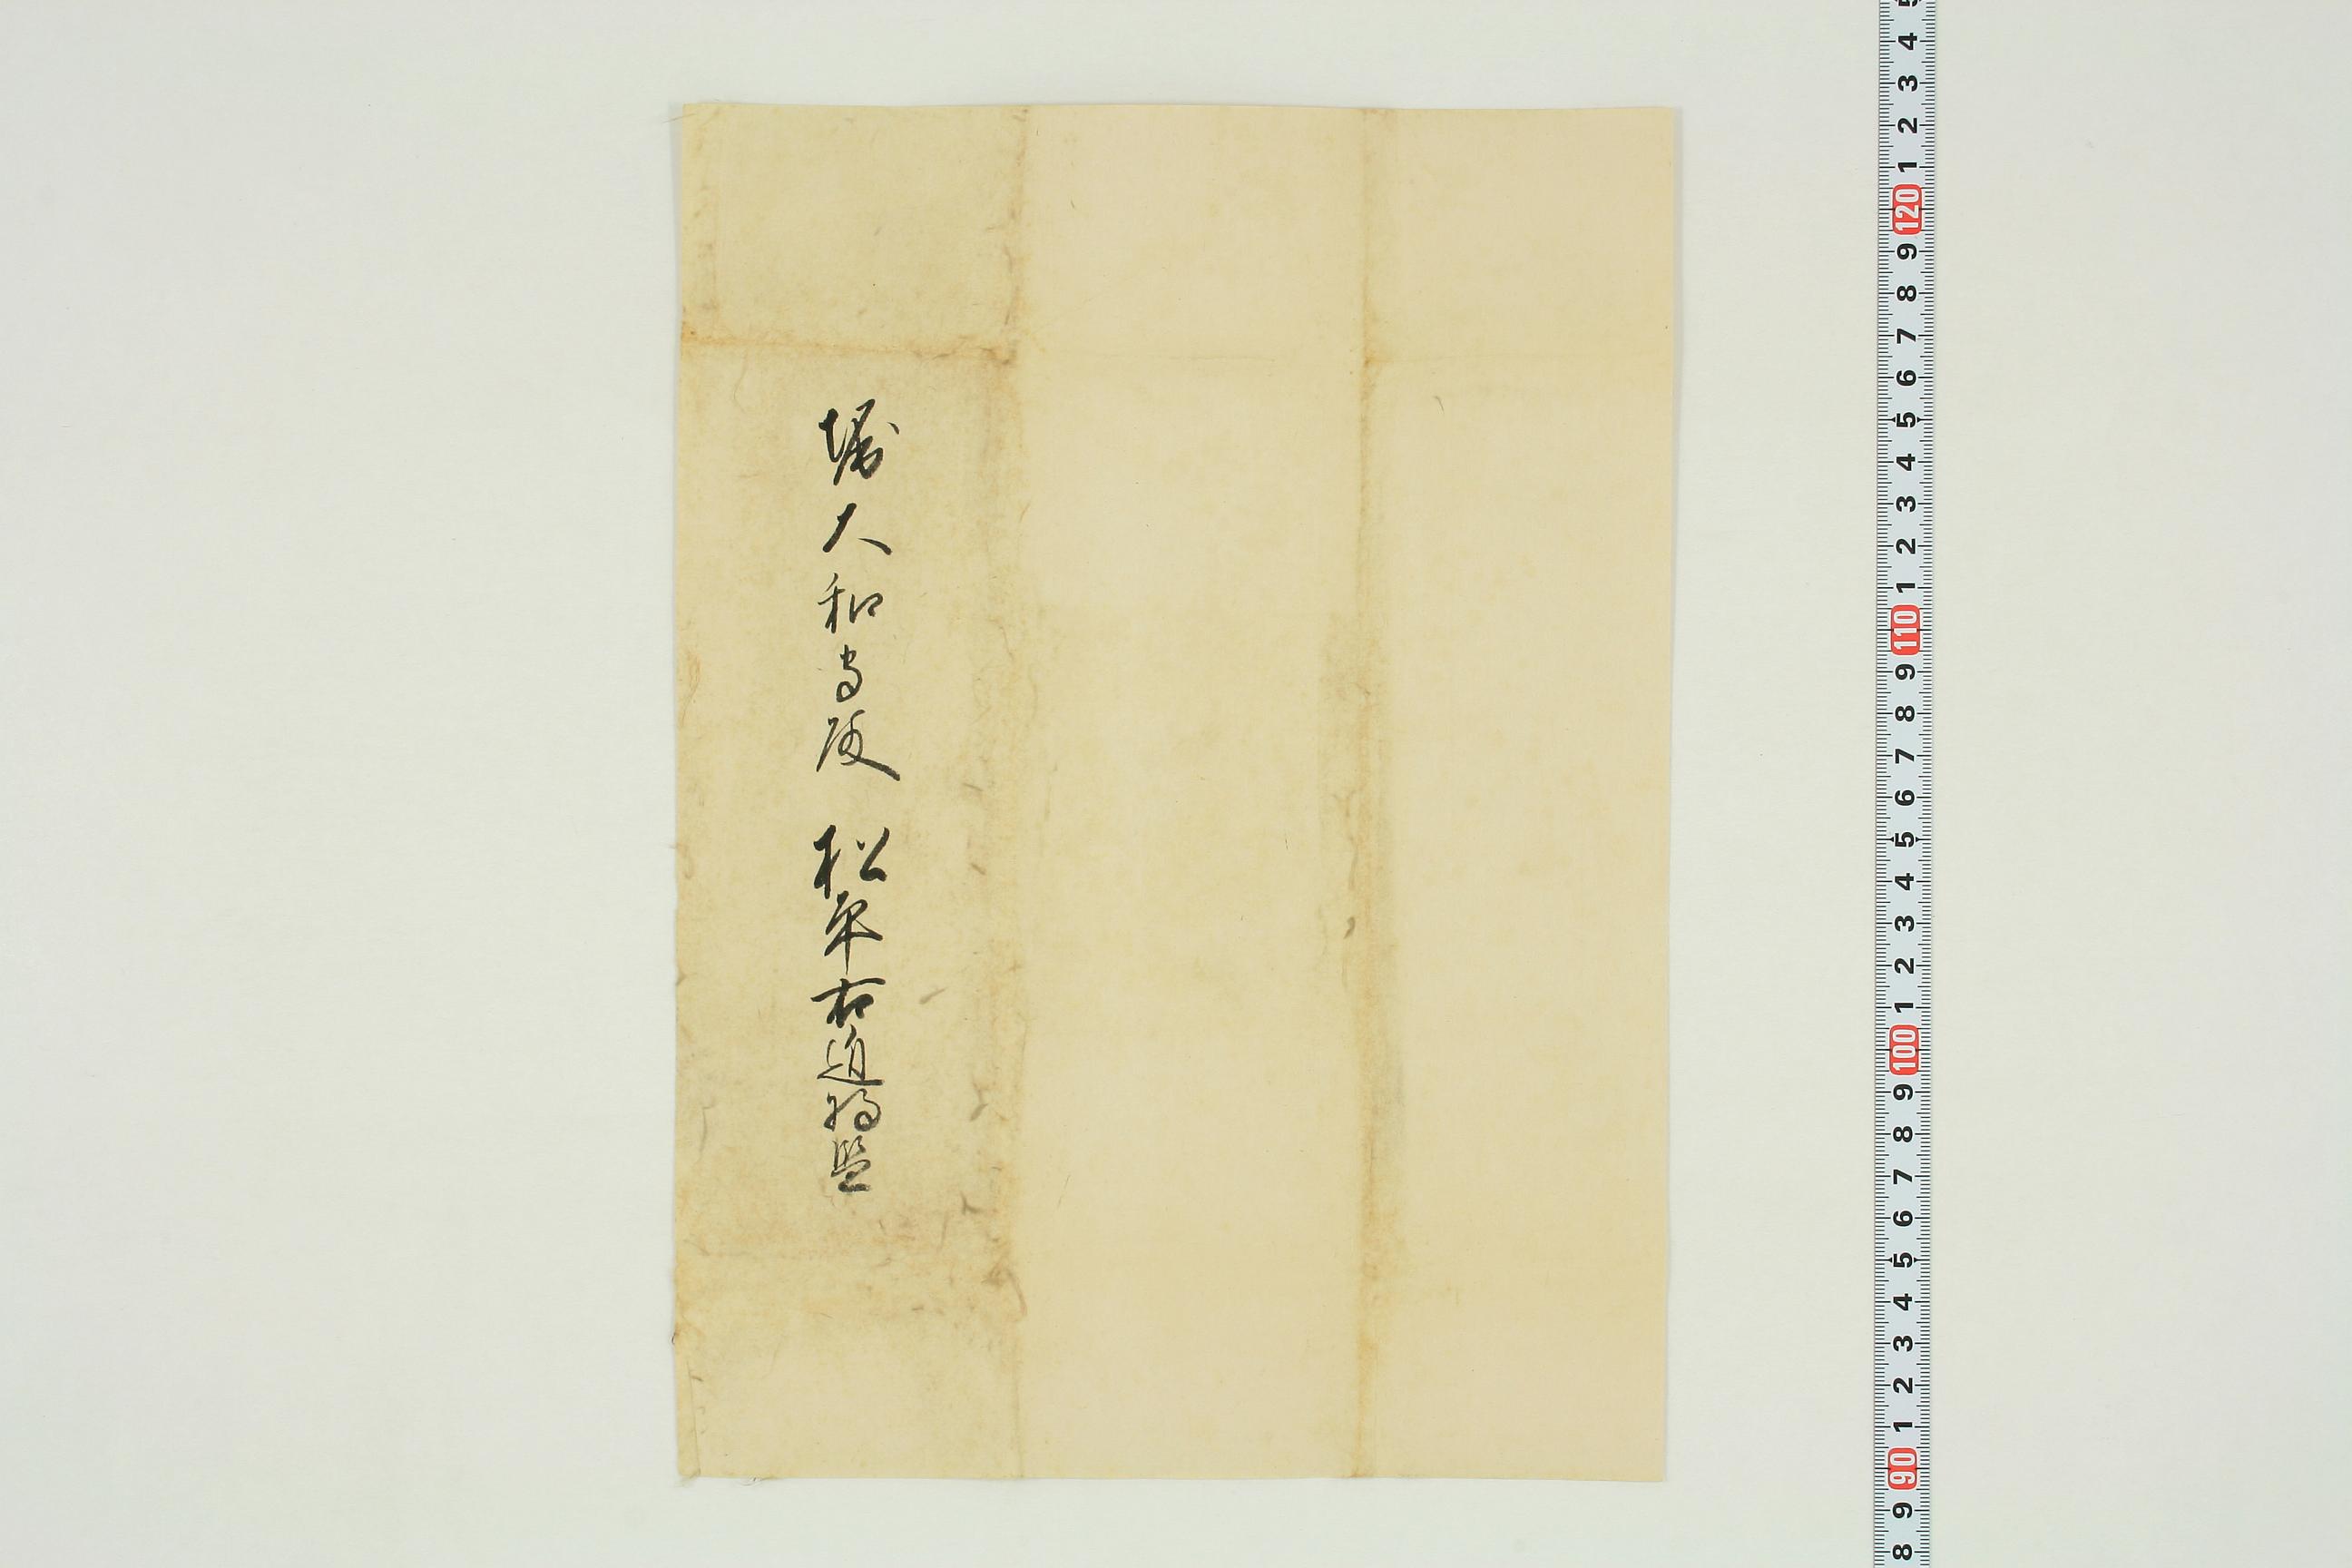 堀大和守殿　松平右近将監
5
4
3
2
1
120
9
8
7
6
5
4
3
2
1
110
9
8
7
6
5
4
3
2
1
100
9
8
7
6
5
4
3
2
1
90
9
8